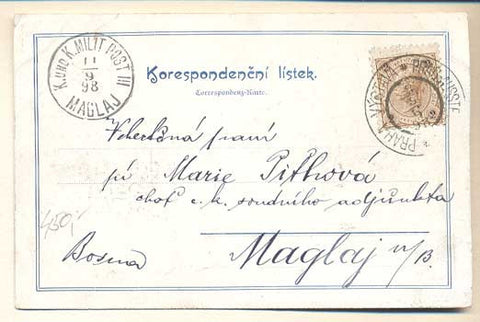 K. UND K. MILIT. POST III
11
9
98
MAGLAJ
Korespondenční lístek.
Correspondenz-Karte.
PRAHA VÝSTAVA
Velectěná paní
pí Marie Pithová
choť c. k. soudního adjunkta
450,-
Bosna
Maglaj n/B.